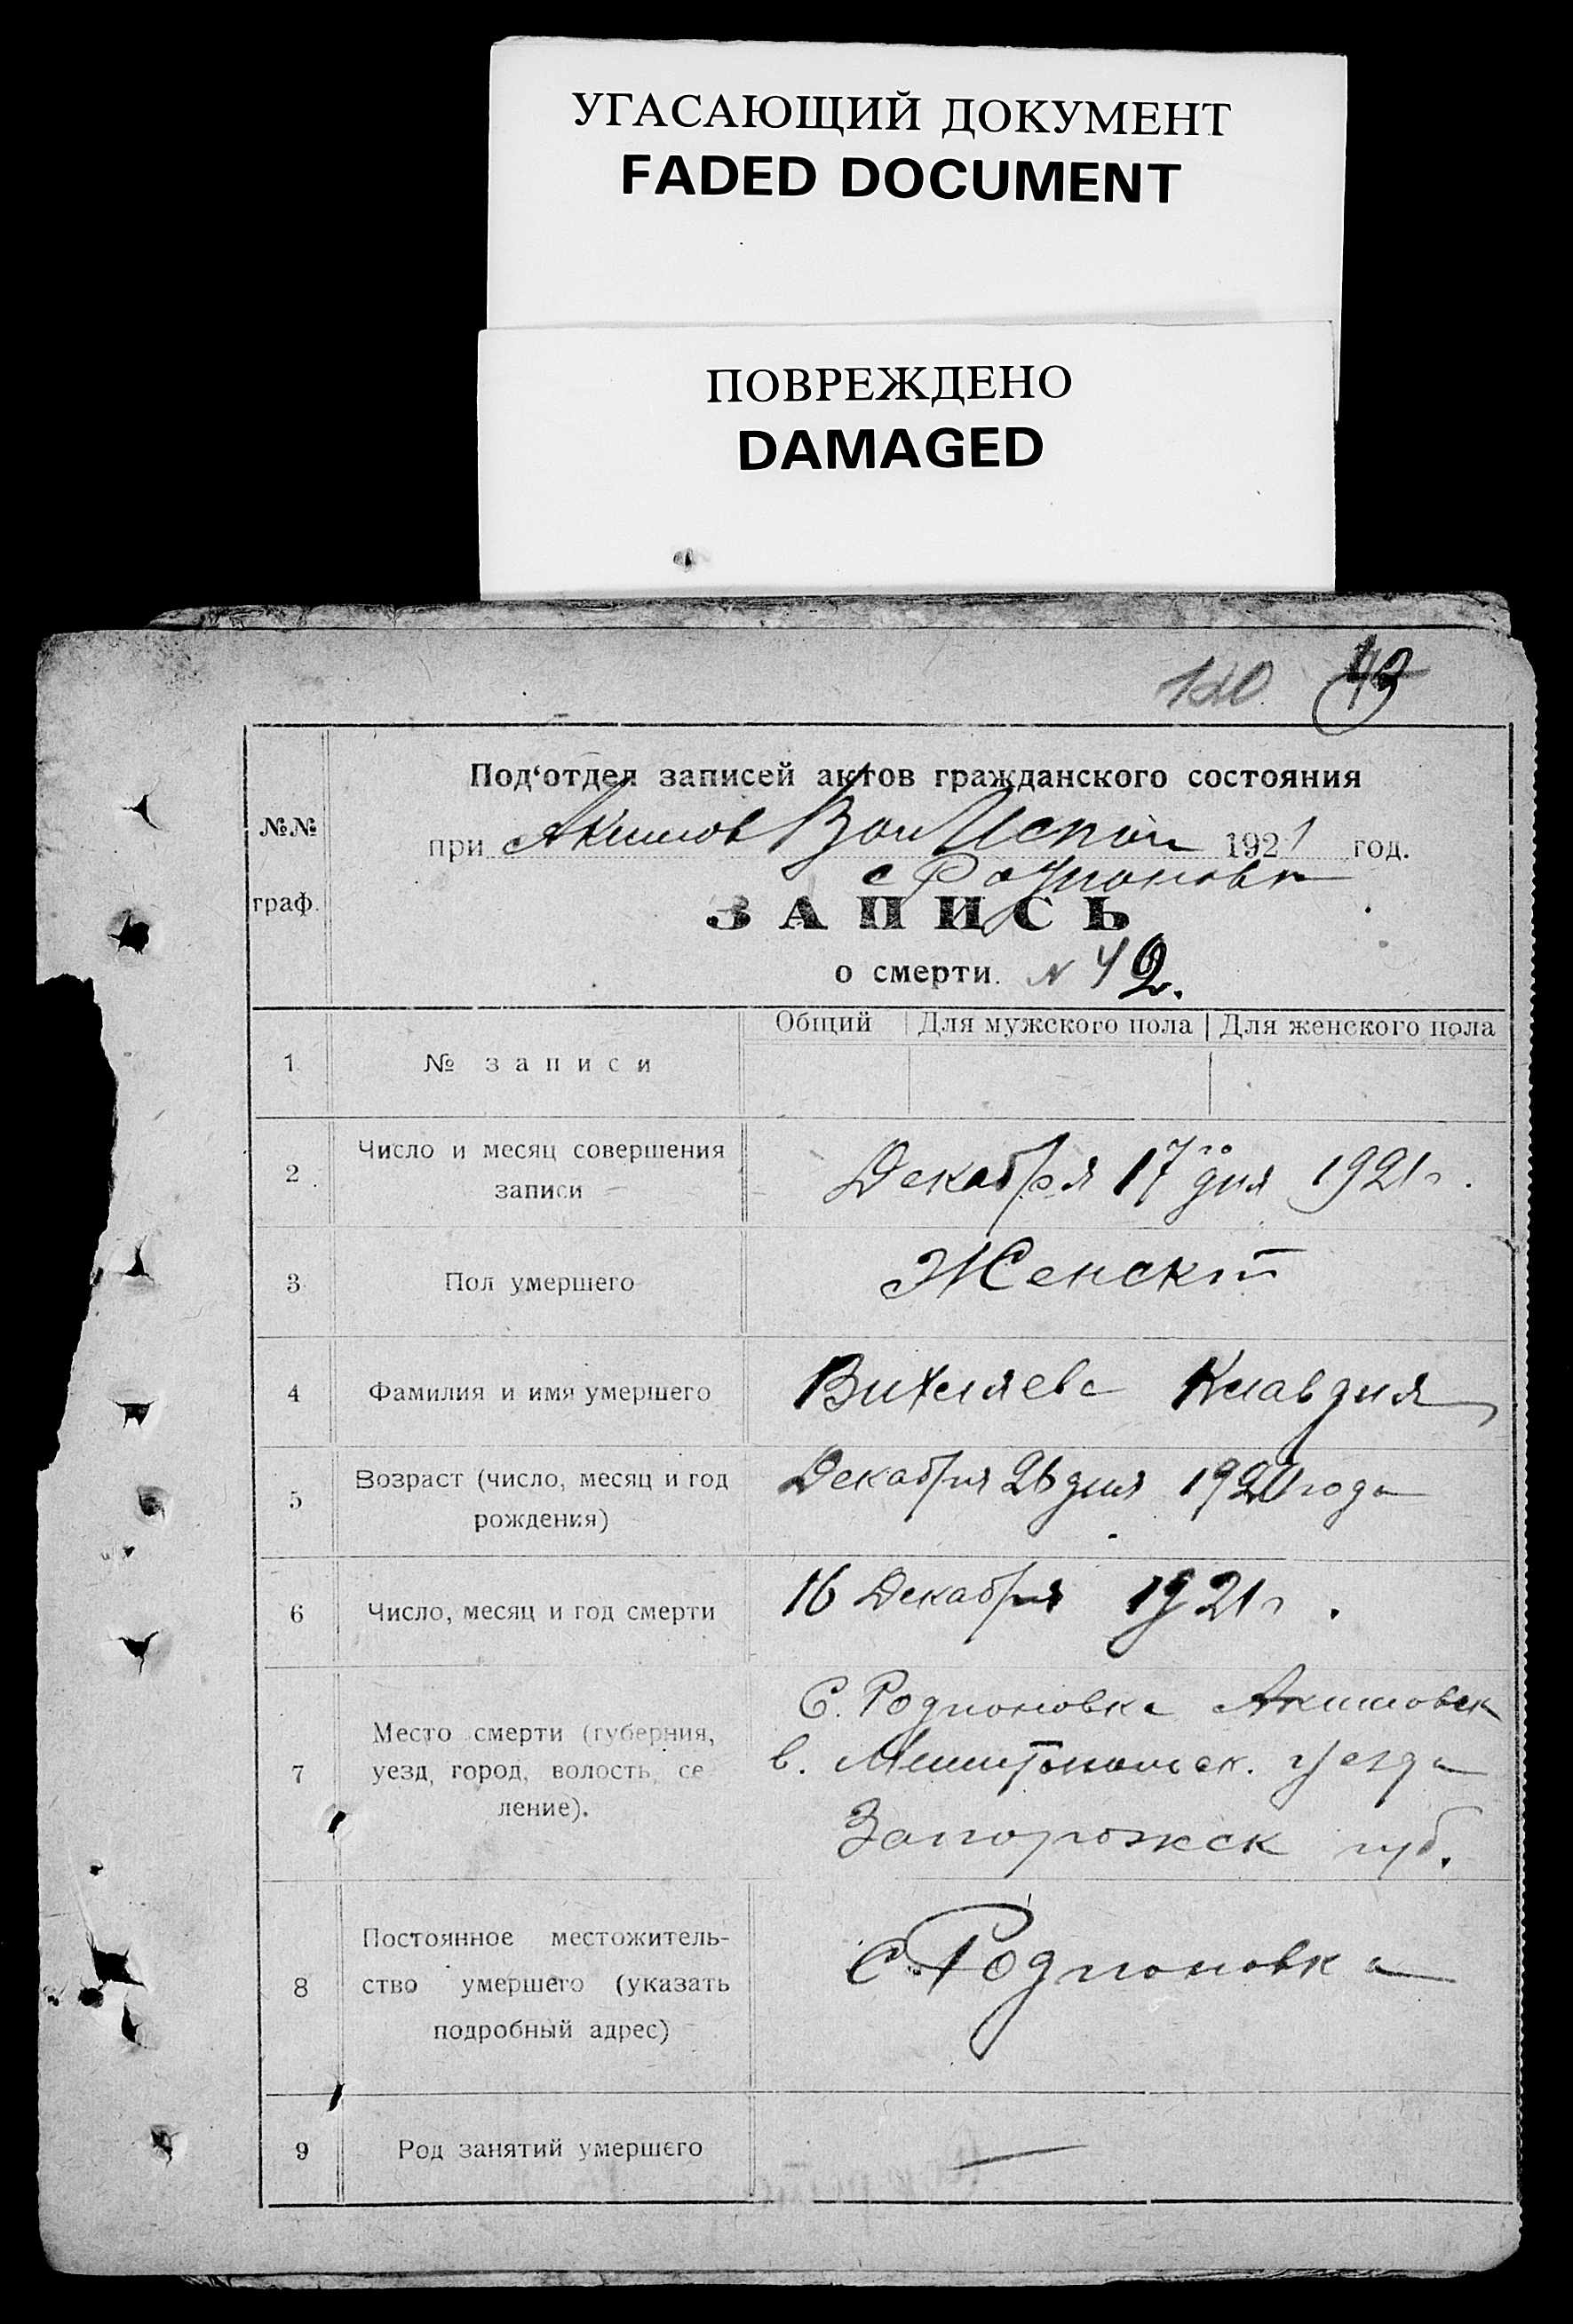 УГАСАЮЩИЙ ДОКУМЕНТ
FADED DOCUMENT
ПОВРЕЖДЕНО
DAMAGED
140 43
№№ граф.
Под‘отдел записей актов гражданского состояния
при Акимов Вол Испол 1921 год.
с Родионовка
ЗАПИСЬ
о смерти. N 42.
Общий Для мужского пола Для женского пола
1 № записи
2 Число и месяц совершения
записи
Декабря 17го дня 1921 г.
3 Пол умершего Женскій
4 Фамилия и имя умершего Вихляева Клавдия
5 Возраст (число, месяц и год
рождения)
Декабря 26 дня 1920 года
6 Число, месяц и год смерти 16 Декабря 1921 г.
7 Место смерти (губерния,
уезд, город, волость, се
ление).
С. Родионовка Акимовск
в. Мелитопольск. уезда
Запорожск губ.
8 Постоянное местожитель-
ство умершего (указать
подробный адрес)
С. Родионовка
9 Род занятий умершего —